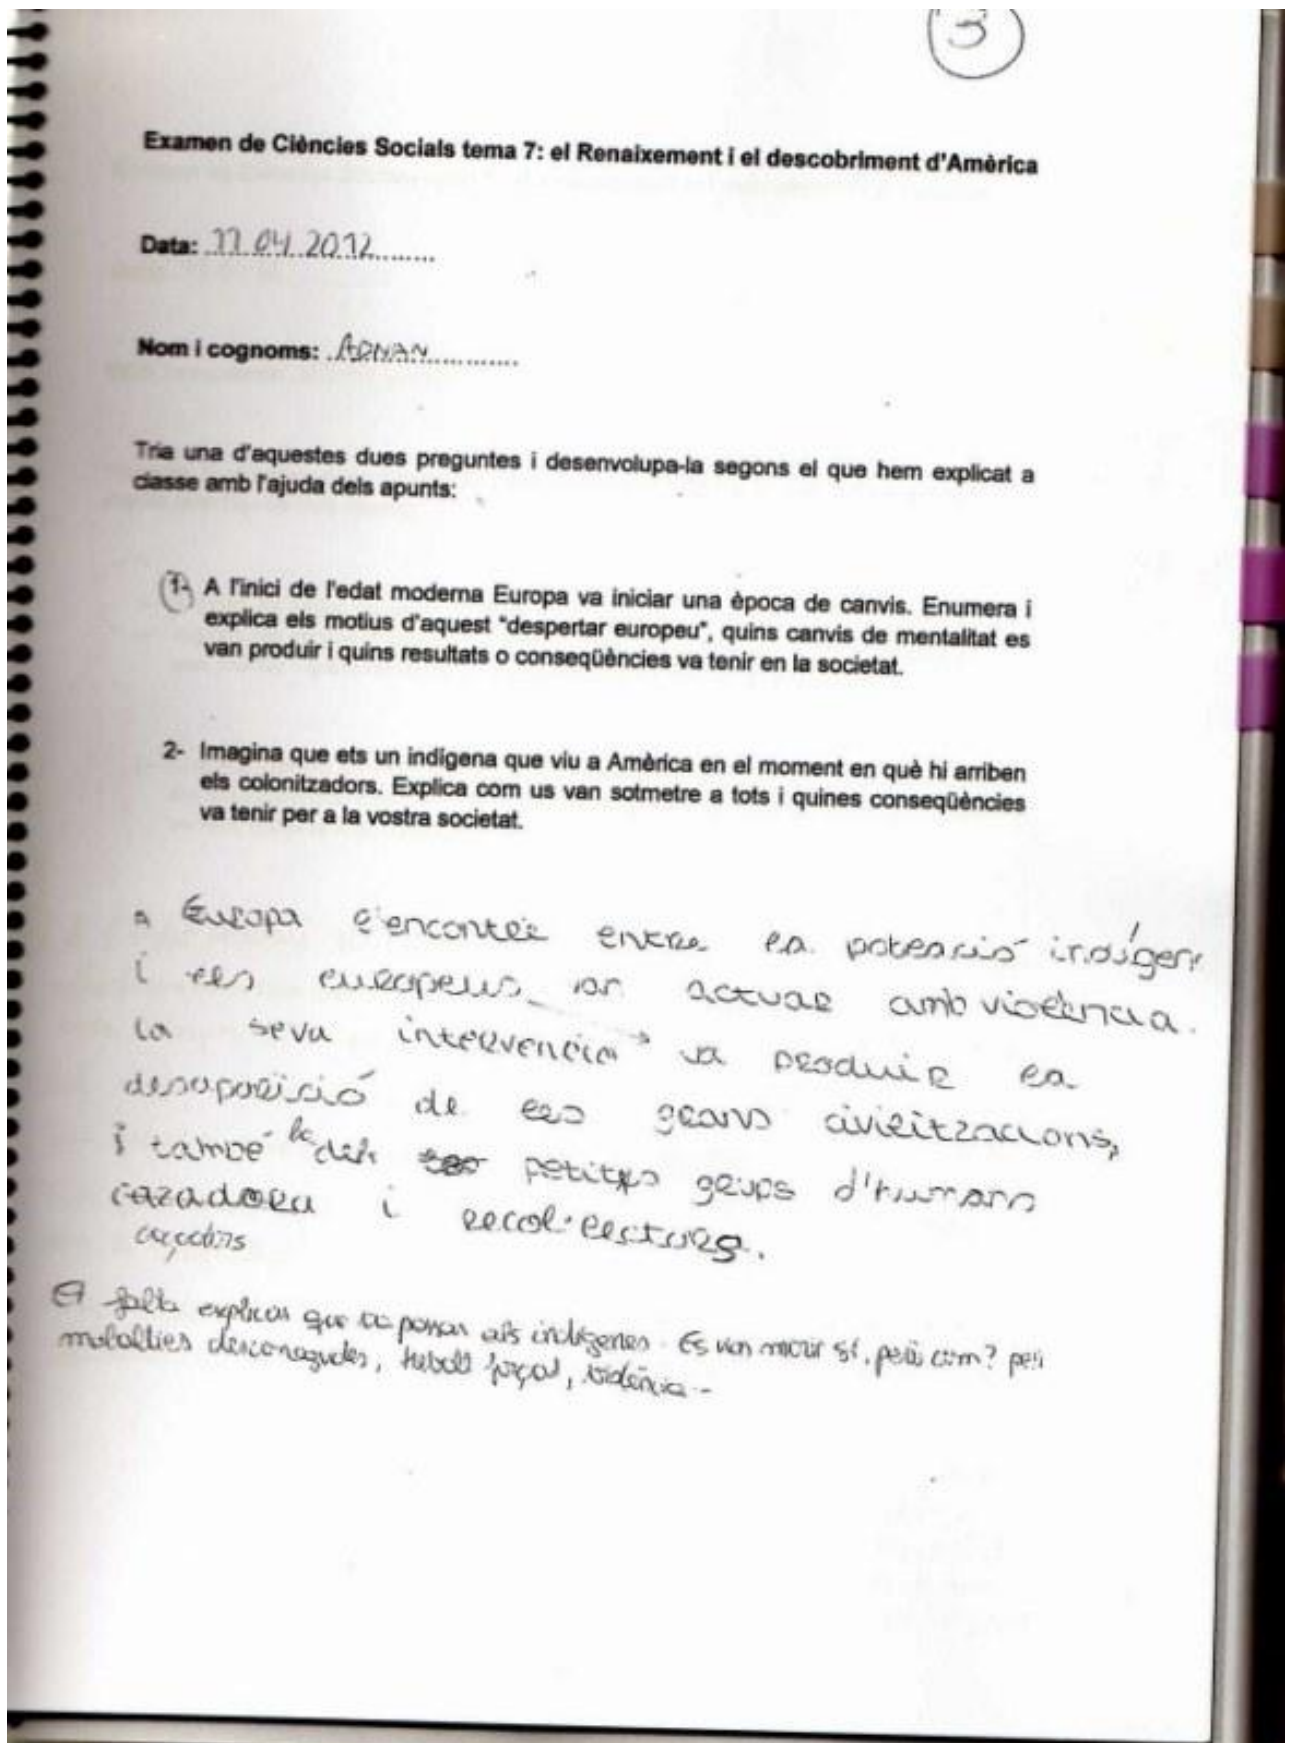 3
Examen de Ciències Socials tema 7: el Renaixement i el descobriment d'Amèrica
Data: 17.04.2012
Nom i cognoms: ADNAN
Tria una d'aquestes dues preguntes i desenvolupa-la segons el que hem explicat a
classe amb l'ajuda dels apunts:
1- A l'inici de l'edat moderna Europa va iniciar una època de canvis. Enumera i
explica els motius d'aquest "despertar europeu", quins canvis de mentalitat es
van produir i quins resultats o conseqüències va tenir en la societat.
2- Imagina que ets un indígena que viu a Amèrica en el moment en què hi arriben
els colonitzadors. Explica com us van sotmetre a tots i quines conseqüències
va tenir per a la vostra societat.
a Europa entre la població indígen
i els europeus van actuar amb violència.
La seva intervenció va produir la
desaparició de les grans civilitzacions,
i també la dels petites grups d'humans
cazadora i recol·lectors.
caçadors
falta explicar que va passar als indígenes. Es van morir sí, però com? per
malalties desconegudes, treball forçat, violència..